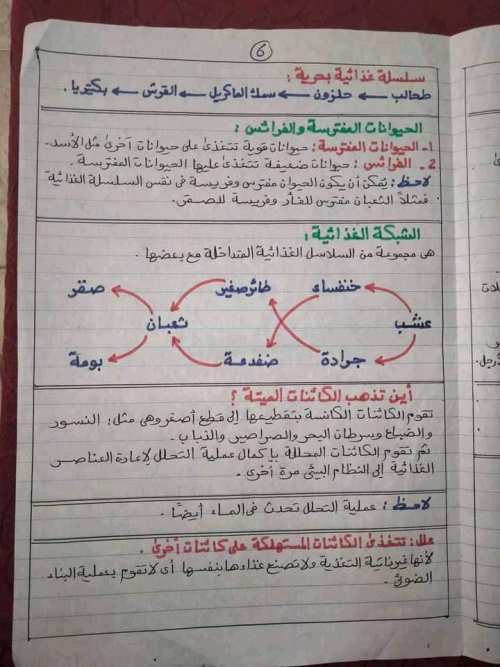 ٦
سلسلة غذائية بحرية :
طحالب ← حلزون ← سمك الماكريل ← القرش ← بكتيريا.
الحيوانات المفترسة والفرائس :
1- الحيوانات المفترسة : حيوانات قوية تتغذى على حيوانات أخرى مثل الأسد.
2- الفرائس : حيوانات ضعيفة تتغذى عليها الحيوانات المفترسة.
لاحظ : يمكن أن يكون الحيوان مفترس وفريسة فى نفس السلسلة الغذائية
فمثلاً الثعبان مفترس للفأر وفريسة للصقر.
الشبكة الغذائية :
هى مجموعة من السلاسل الغذائية المتداخلة مع بعضها.
خنفساء طائر صغير صقر
عشب ثعبان
جرادة ضفدعة بومة
أين تذهب الكائنات الميتة ؟
تقوم الكائنات الكانسة بتقطيعها إلى قطع أصغر وهى مثل : النسور
والضباع وسرطان البحر والصراصير والذباب.
ثم تقوم الكائنات المحللة بإكمال عملية التحلل لإعادة العناصر
الغذائية إلى النظام البيئى مرة أخرى.
لاحظ : عملية التحلل تحدث فى الماء أيضًا.
علل : تتغذى الكائنات المستهلكة على كائنات أخرى.
لأنها غير ذاتية التغذية ولا تصنع غذاءها بنفسها أى لا تقوم بعملية البناء
الضوئى.